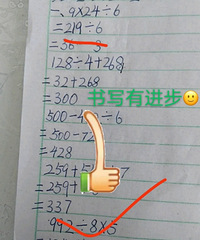 一、9×24÷6
=219÷6
=36 3
128÷4+268
=32+268
=300
书写有进步
500-4 ÷6
=500-72
=428
259+ 7
=259+
=337
992÷8×5